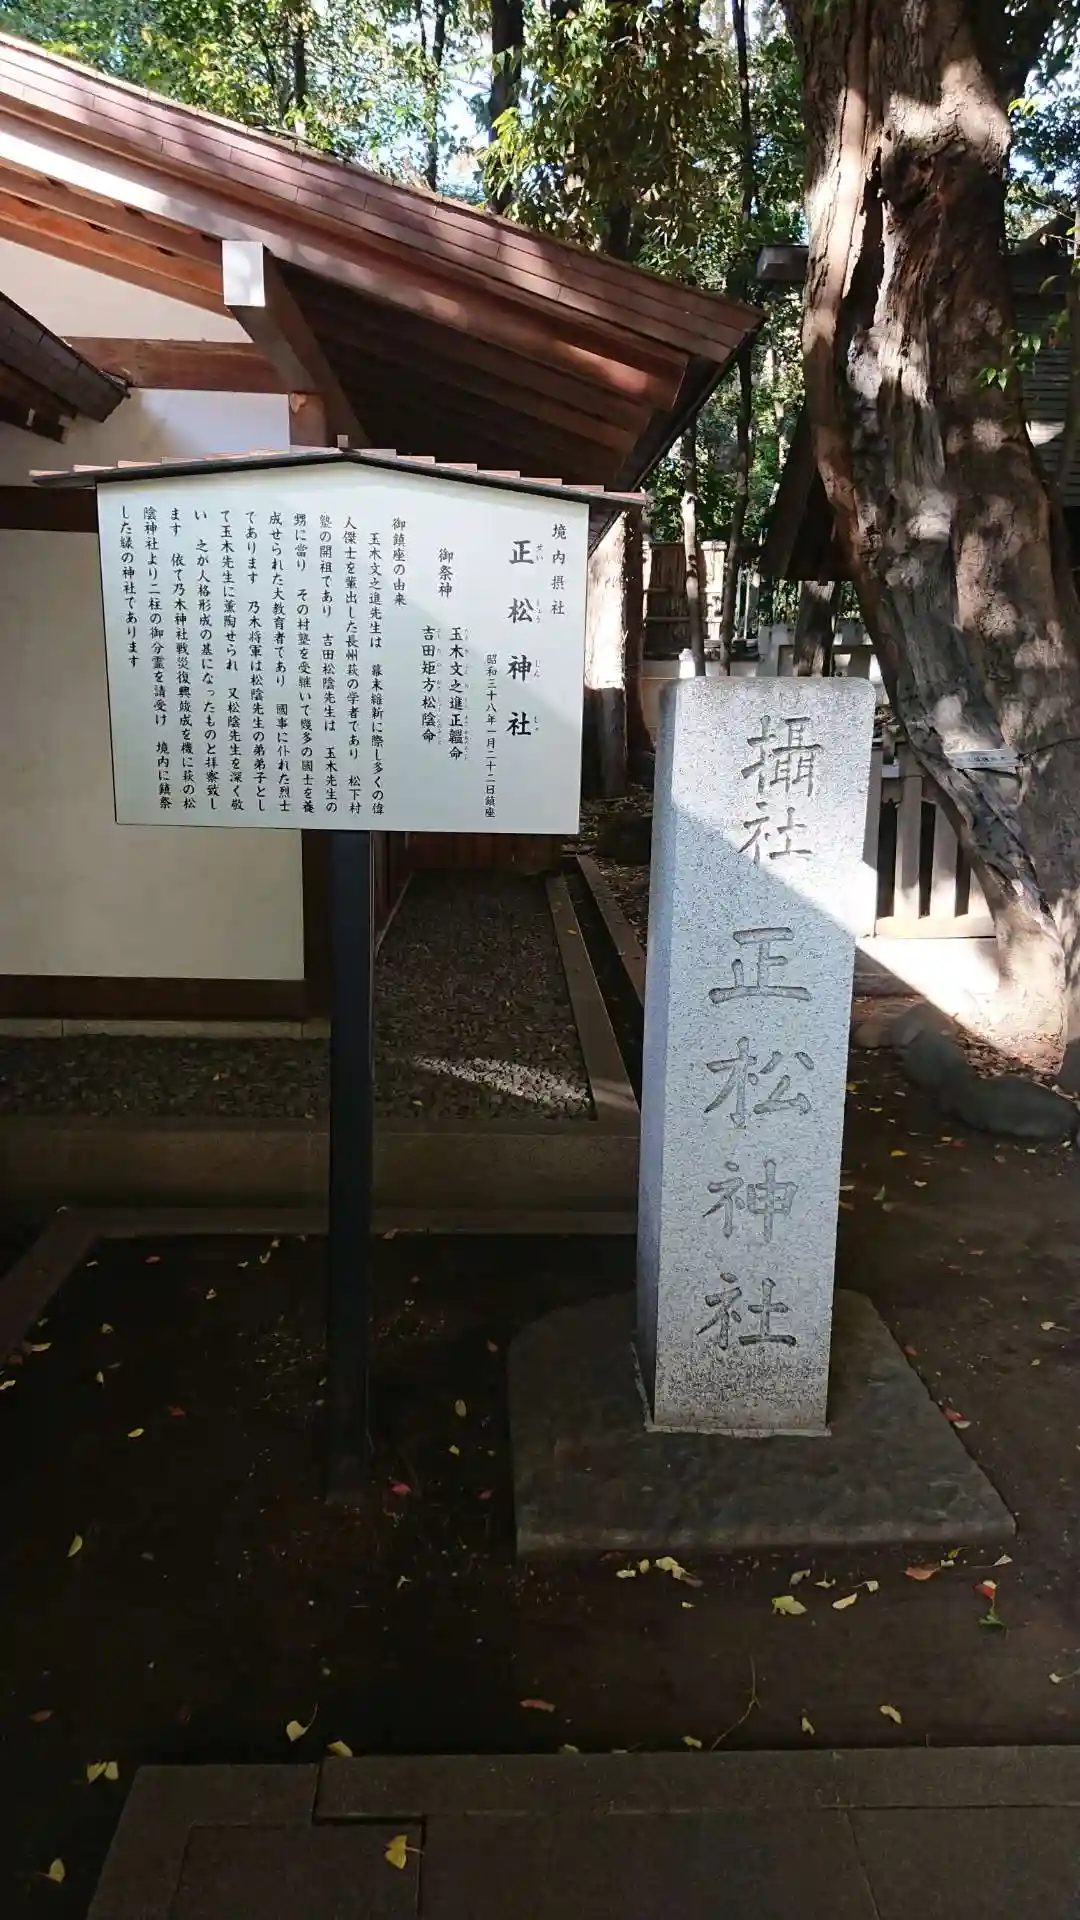 境内摂社
正松神社
せいしょうじんじゃ
昭和三十八年一月二十二日鎮座
御祭神
玉木文之進正韞命
吉田矩方松陰命
御鎮座の由来
玉木文之進先生は 幕末維新に際し多くの偉
人傑士を輩出した長州萩の学者であり 松下村
塾の開祖であり 吉田松陰先生は 玉木先生の
甥に當り その村塾を受継いで幾多の國士を養
成せられた大教育者であり 國事に仆れた烈士
であります 乃木将軍は松陰先生の弟弟子とし
て玉木先生に薫陶せられ 又松陰先生を深く敬
い 之が人格形成の基になったものと拝察致し
ます 依て乃木神社戦災復興竣成を機に萩の松
陰神社より二柱の御分霊を請受け 境内に鎮祭
した縁の神社であります
攝社 正松神社